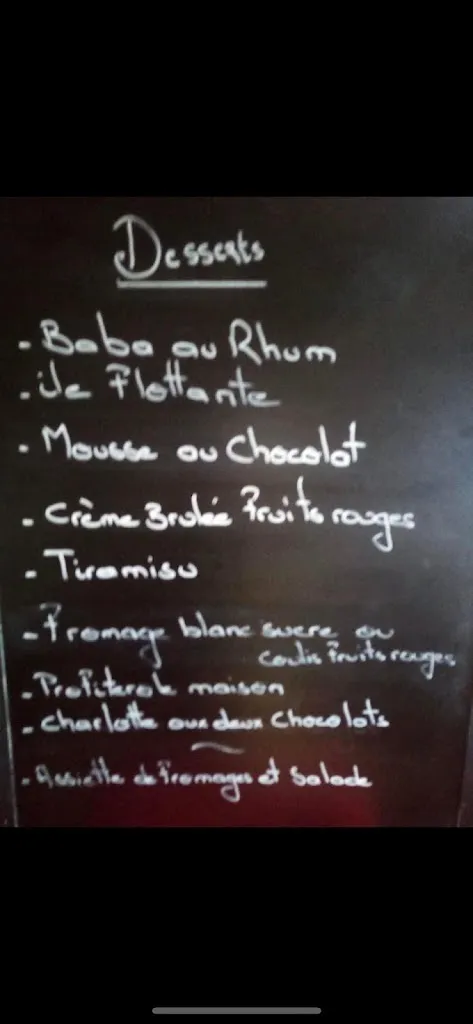 Desserts
- Baba au Rhum
- ile Flottante
- Mousse au Chocolat
- Crème Brulée Fruits rouges
- Tiramisu
- Fromage blanc sucre ou
coulis fruits rouges
- Profiterole maison
- Charlotte aux deux chocolats
- Assiette de Fromages et Salade